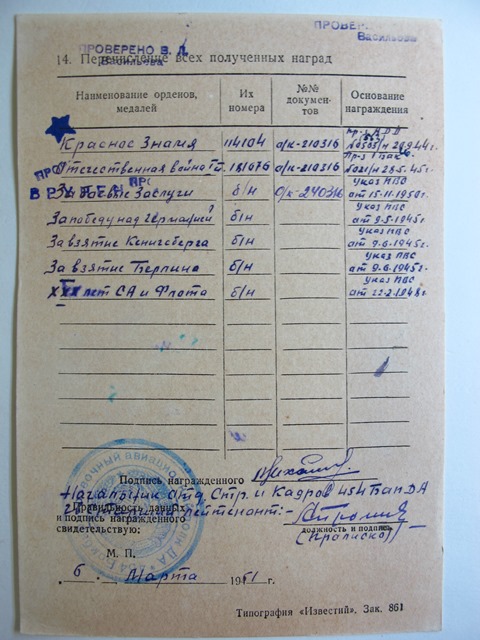 ПРОВЕРЕНО В. Д.
Васильева
ПРОВЕР
Васильева
14. Перечисление всех полученных наград
Наименование орденов, медалей
Их номера
№№ документов
Основание награждения
Красное Знамя 114104 о/к-210316
Отечественная война 181676 о/к-210316
ВРУЧЕН
За боевые Заслуги б/н о/к-240316 Указ ПВС от 15-11-1950г.
За победу над Германией б/н Указ ПВС от 9-5-1945г
За взятие Кенигсберга б/н Указ ПВС от 9-6-1945г.
За взятие Берлина б/н Указ ПВС от 9-6-1945г.
XXX лет СА и Флота б/н Указ ПВС от 22-2-1948г.
Подпись награжденного
Начальник Отд. Стр. и Кадров 454 БАП ДА
Старший лейтенант:-
Правильность данных
и подпись награжденного
свидетельствую:
должность и подпись
М. П.
6 Марта 1951 г.
Типография «Известий». Зак. 861